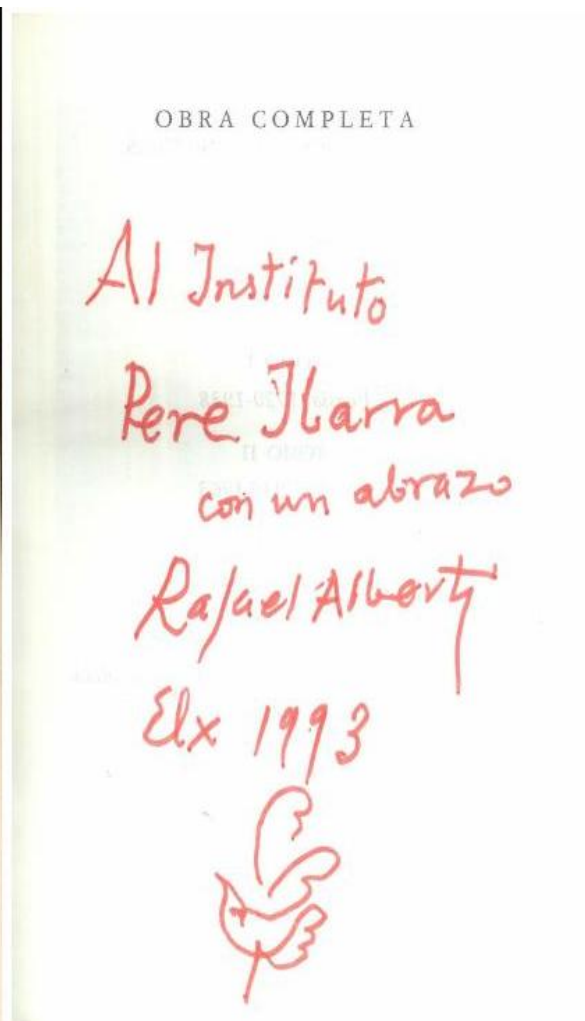 OBRA COMPLETA
Al Instituto
Pere Ibarra
con un abrazo
Rafael Alberti
Elx 1993